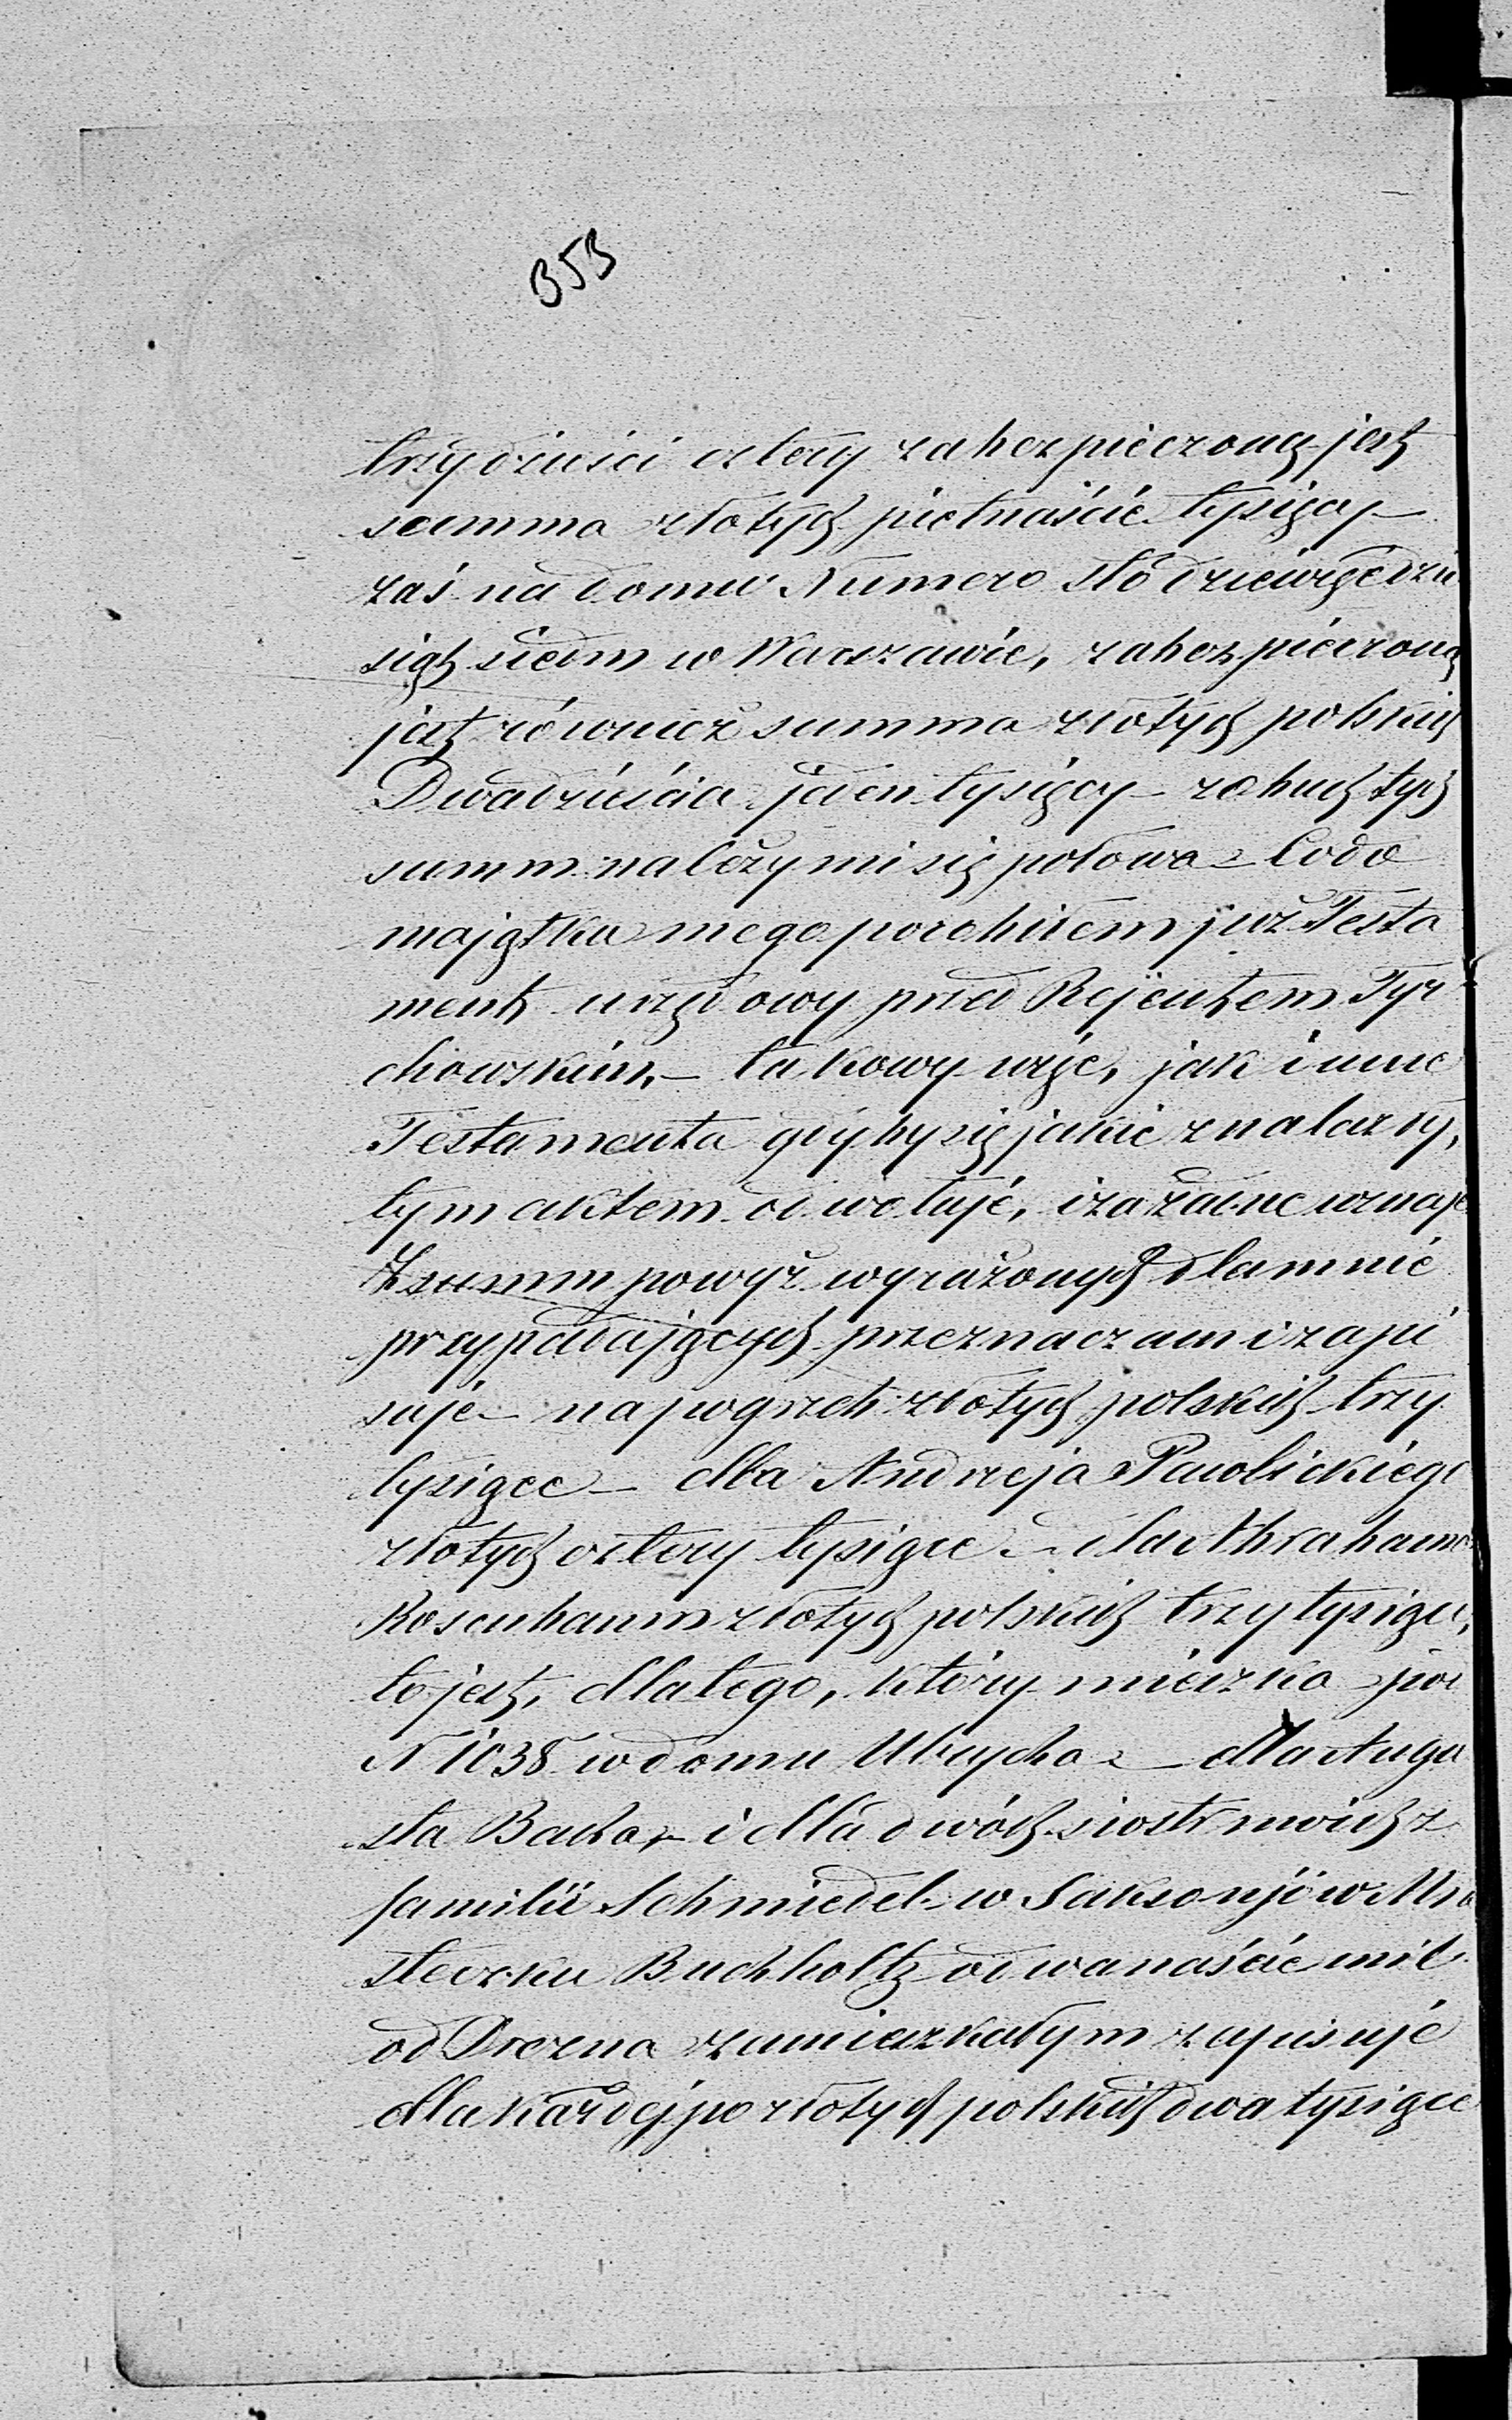 353
trzydzieści cztery zabezpieczoną jest
summa złotych pietnaście tysięcy –
zaś na domu Numero sto dziewięćdzie
siąt siedm w Warszawie, zabezpieczoną
jest również summa złotych polskich
Dwadzieścia jeden tysięcy – z obuch tych
summ należy mi się połowa – Co do
majątku mego porobiłem już Testa
ment urzędowy przed Rejentem Tyr
chowskim, – takowy więc, jak i inne
Testamenta gdyby się jakie znalazły,
tym aktem odwołuję, i za żadne uznaję
Z summ powyż wyrażonych dla mnie
przypadających przeznaczam i zapi
suję – na pogrzeb złotych polskich trzy
tysiące – dla Andrzeja Pawlickiego
złotych cztery tysiące – dla Abrahama
Rosenbaum złotych polskich trzy tysiące,
to jest, dla tego, który mieszka pod
N 1038 w domu Ulrycha – dla Augu
sta Bacha – i dla dwóch siostr moich z
familii Schmiedel – w Saksonji w Mia
steczku Buchholtz o dwanaście mil
od Drezna zamieszkałym zapisuję
dla każdej po złotych polskich dwa tysiące